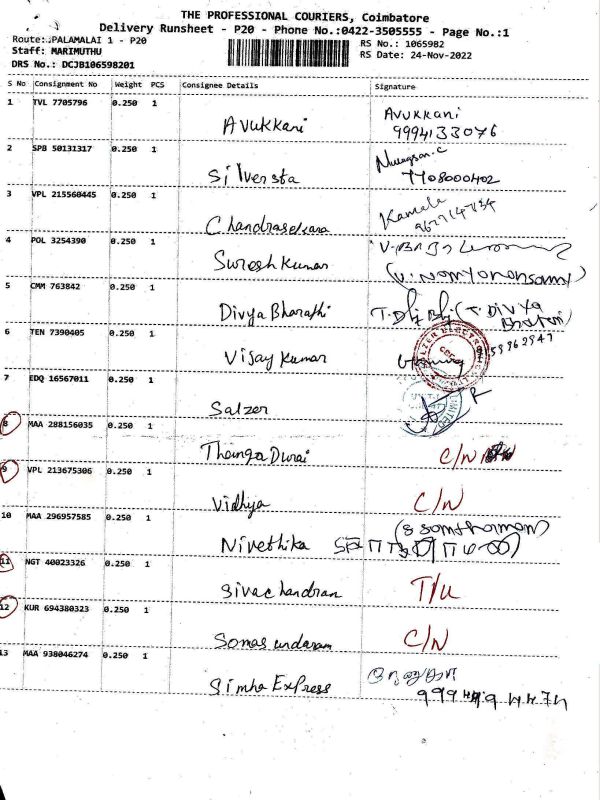 THE PROFESSIONAL COURIERS, Coimbatore
Delivery Runsheet - P20 - Phone No.:0422-3505555 - Page No.:1
Route: PALAMALAI 1 - P20
Staff: MARIMUTHU
DRS No.: DCJB106598201
RS No.: 1065982
RS Date: 24-Nov-2022
S No Consignment No Weight PCS Consignee Details Signature
1 TVL 7705796 0.250 1
Avukkani Avukkani
9994133076
2 SPB 50131317 0.250 1
Silversta 7708000402
3 VPL 215560445 0.250 1
Chandrasekara Kamala
4 POL 3254390 0.250 1
Suresh Kumar
5 CMM 763842 0.250 1
Divya Bharathi (T. Divya
Bharathi)
6 TEN 7390405 0.250 1
Vijay Kumar
7 EDQ 16567011 0.250 1
Salzer
8 MAA 288156035 0.250 1
Thanga Durai C/N
9 VPL 213675306 0.250 1
Vidhya C/N
10 MAA 296957585 0.250 1
Nivethika
11 NGT 40023326 0.250 1
Sivachandran T/U
12 KUR 694380323 0.250 1
Somasundaram C/N
13 MAA 938046274 0.250 1
Simha Express